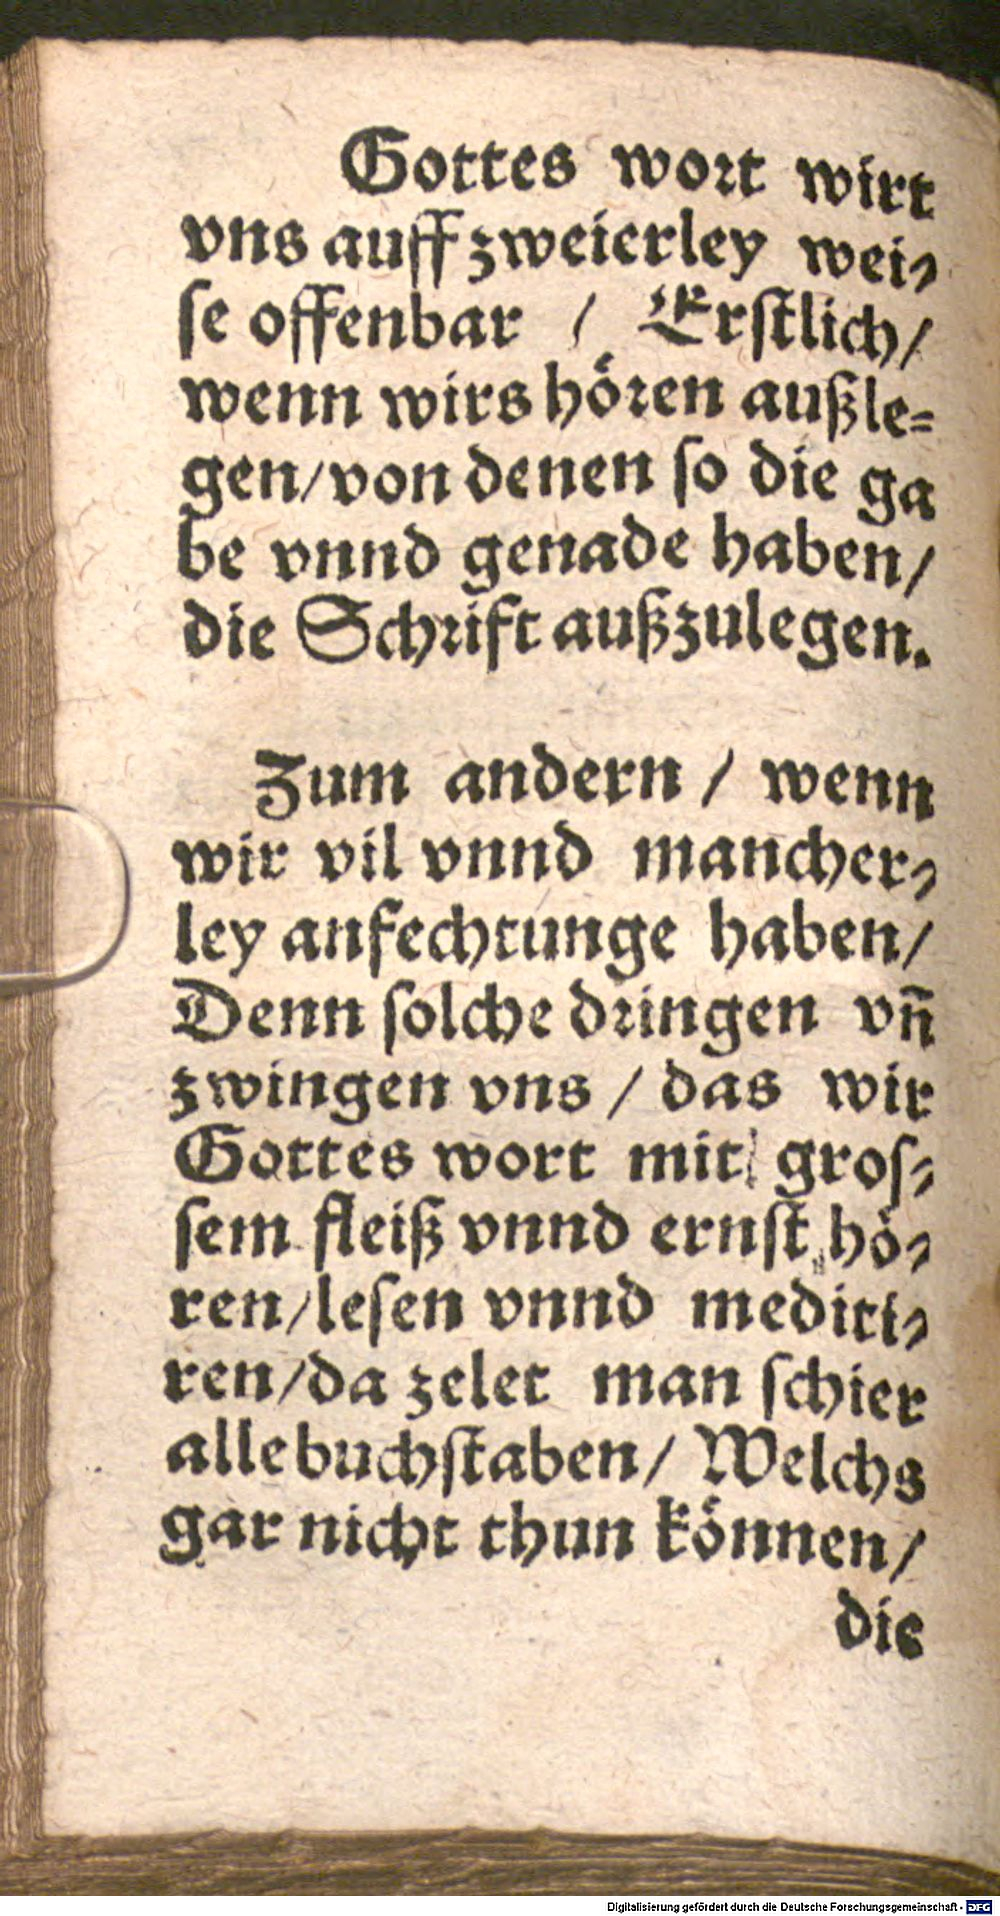 Gottes wort wirt
vns auff zweierley wei-
se offenbar / Erstlich/
wenn wirs hören außle-
gen/von denen so die ga
be vnnd genade haben/
die Schrift außzulegen.
Zum andern / wenn
wir vil vnnd mancher-
ley anfechtunge haben/
Denn solche dringen vn̄
zwingen vns / das wir
Gottes wort mit gros-
sem fleiß vnnd ernst hö-
ren/lesen vnnd mediti-
ren/da zelet man schier
alle buchstaben/ Welchs
gar nicht thun können/
die
Digitalisierung gefördert durch die Deutsche Forschungsgemeinschaft - DFG